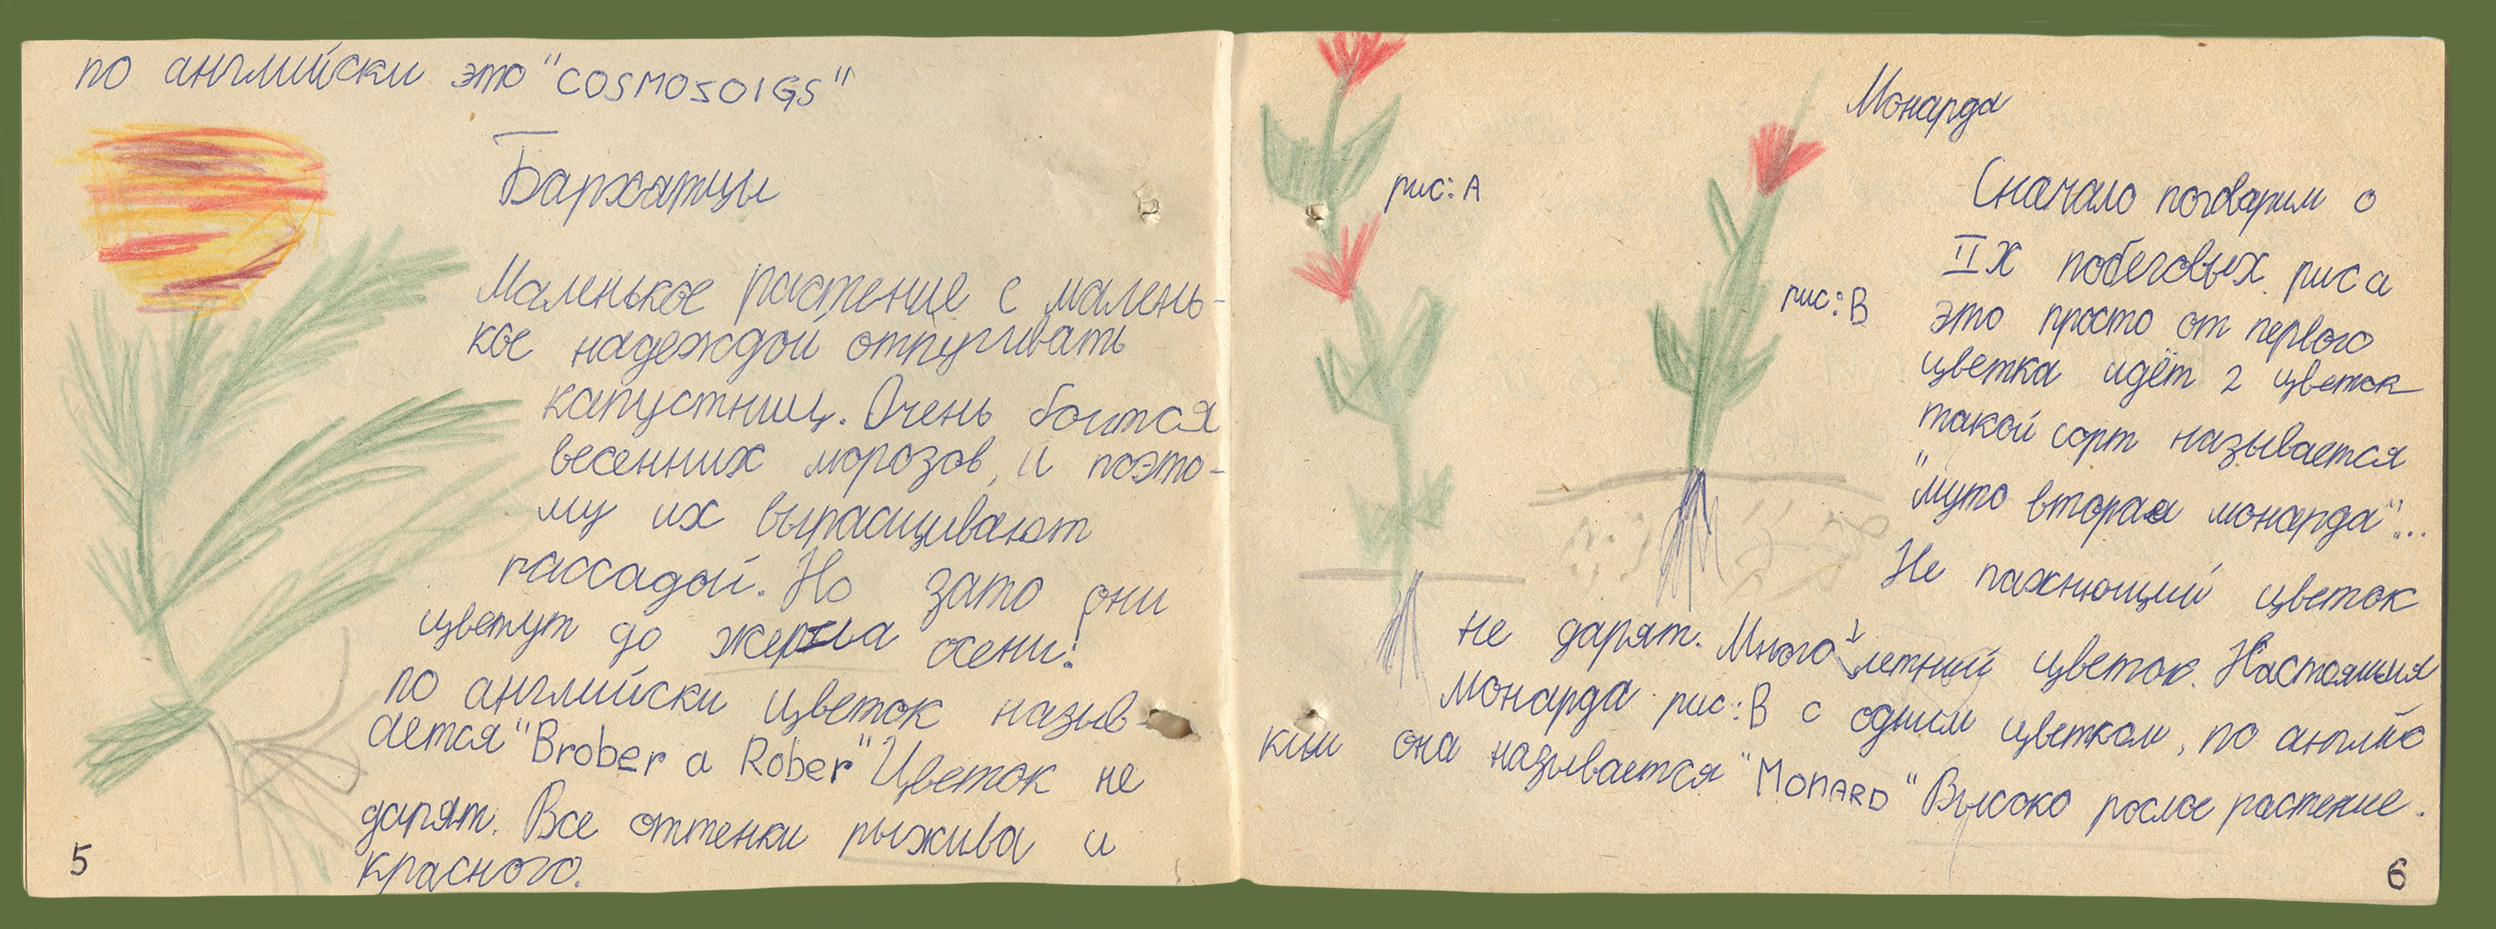 по английски это "COSMOSOIGS"
Бархатцы
Маленькое растение с малень-
кое надеждой отпугивать
капустниц. Очень боится
весенних морозов, и поэто-
му их выращивают
рассадой. Но зато они
цветут до осени!
по английски цветок назыв-
ается "Brober a Rober" Цветок не
дарят. Все оттенки рыжива и
красного.
5
Монарда
рис: А
рис: В
Сначало поговарим о
IIх побеговых. рис а
это просто от первого
цветка идёт 2 цветок
такой сорт называется
"муто вторая монарда"...
Не пахнющий цветок
не дарят. Много летний цветок. Настоящия
монарда рис: В с одним цветком, по англйс
ким она называется "MONARD" Высоко рослое растение.
6